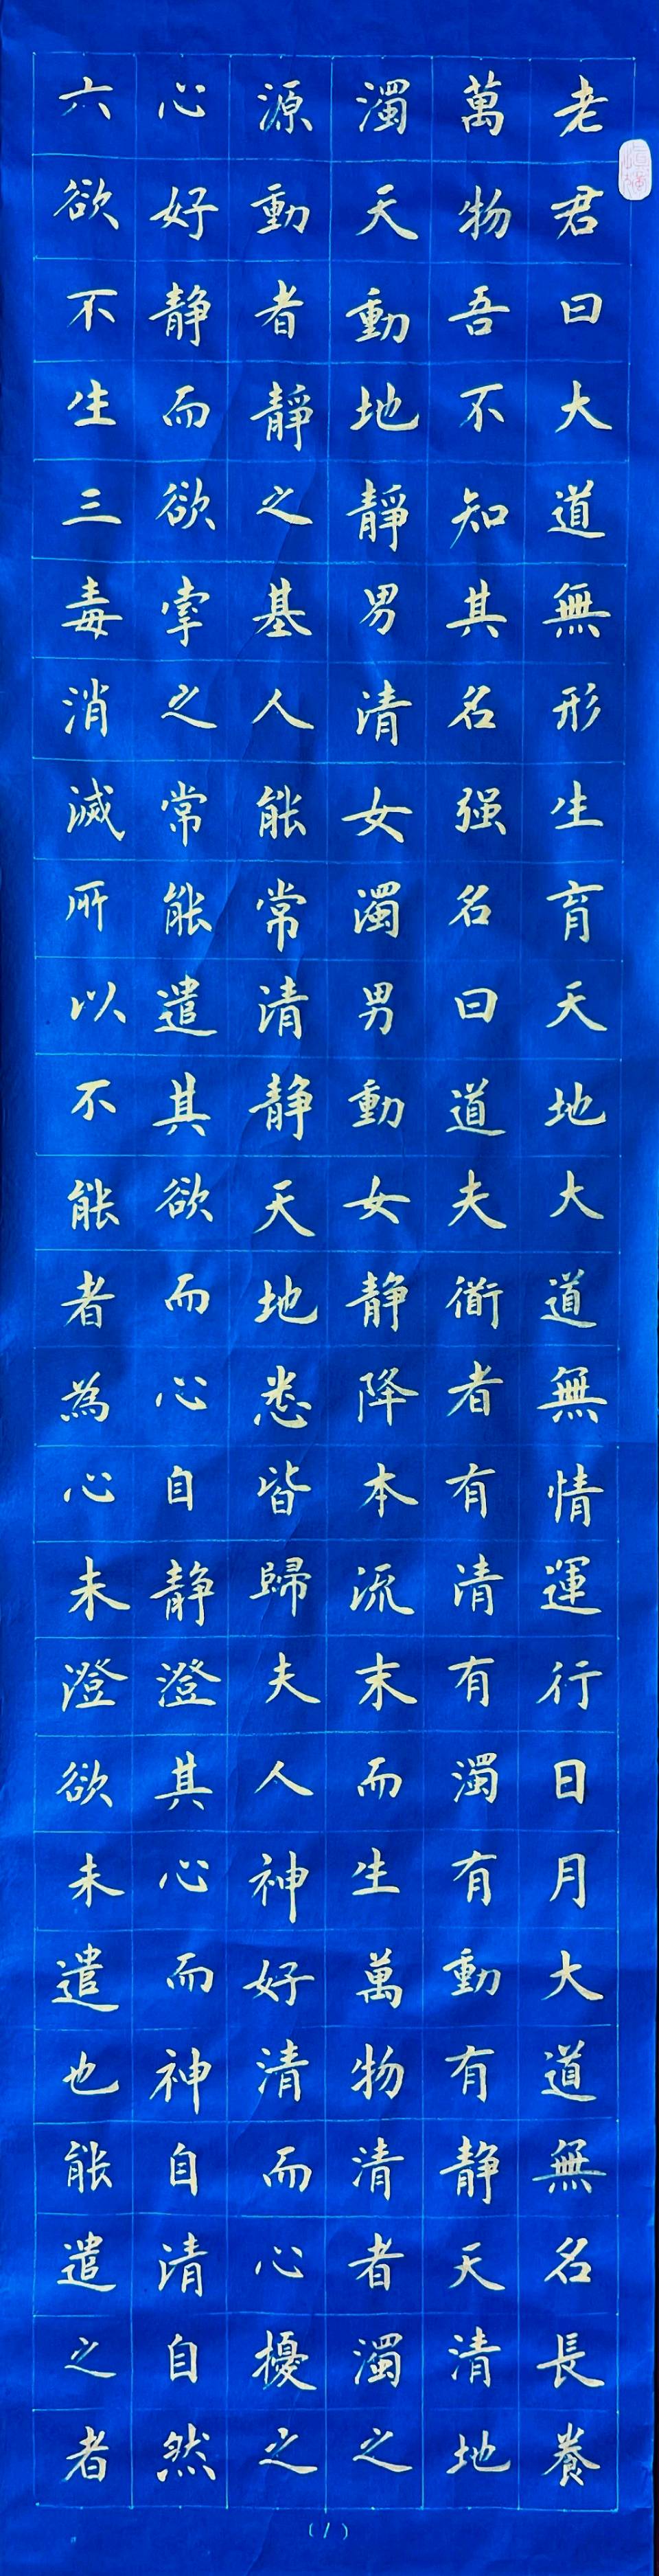 老君曰大道無形生育天地大道無情運行日月大道無名長養
萬物吾不知其名强名曰道夫衜者有清有濁有動有静天清地
濁天動地靜男清女濁男動女静降本流末而生萬物清者濁之
源動者靜之基人能常清静天地悉皆歸夫人神好清而心擾之
心好静而欲牽之常能遣其欲而心自静澄其心而神自清自然
六欲不生三毒消滅所以不能者為心未澄欲未遣也能遣之者
(1)